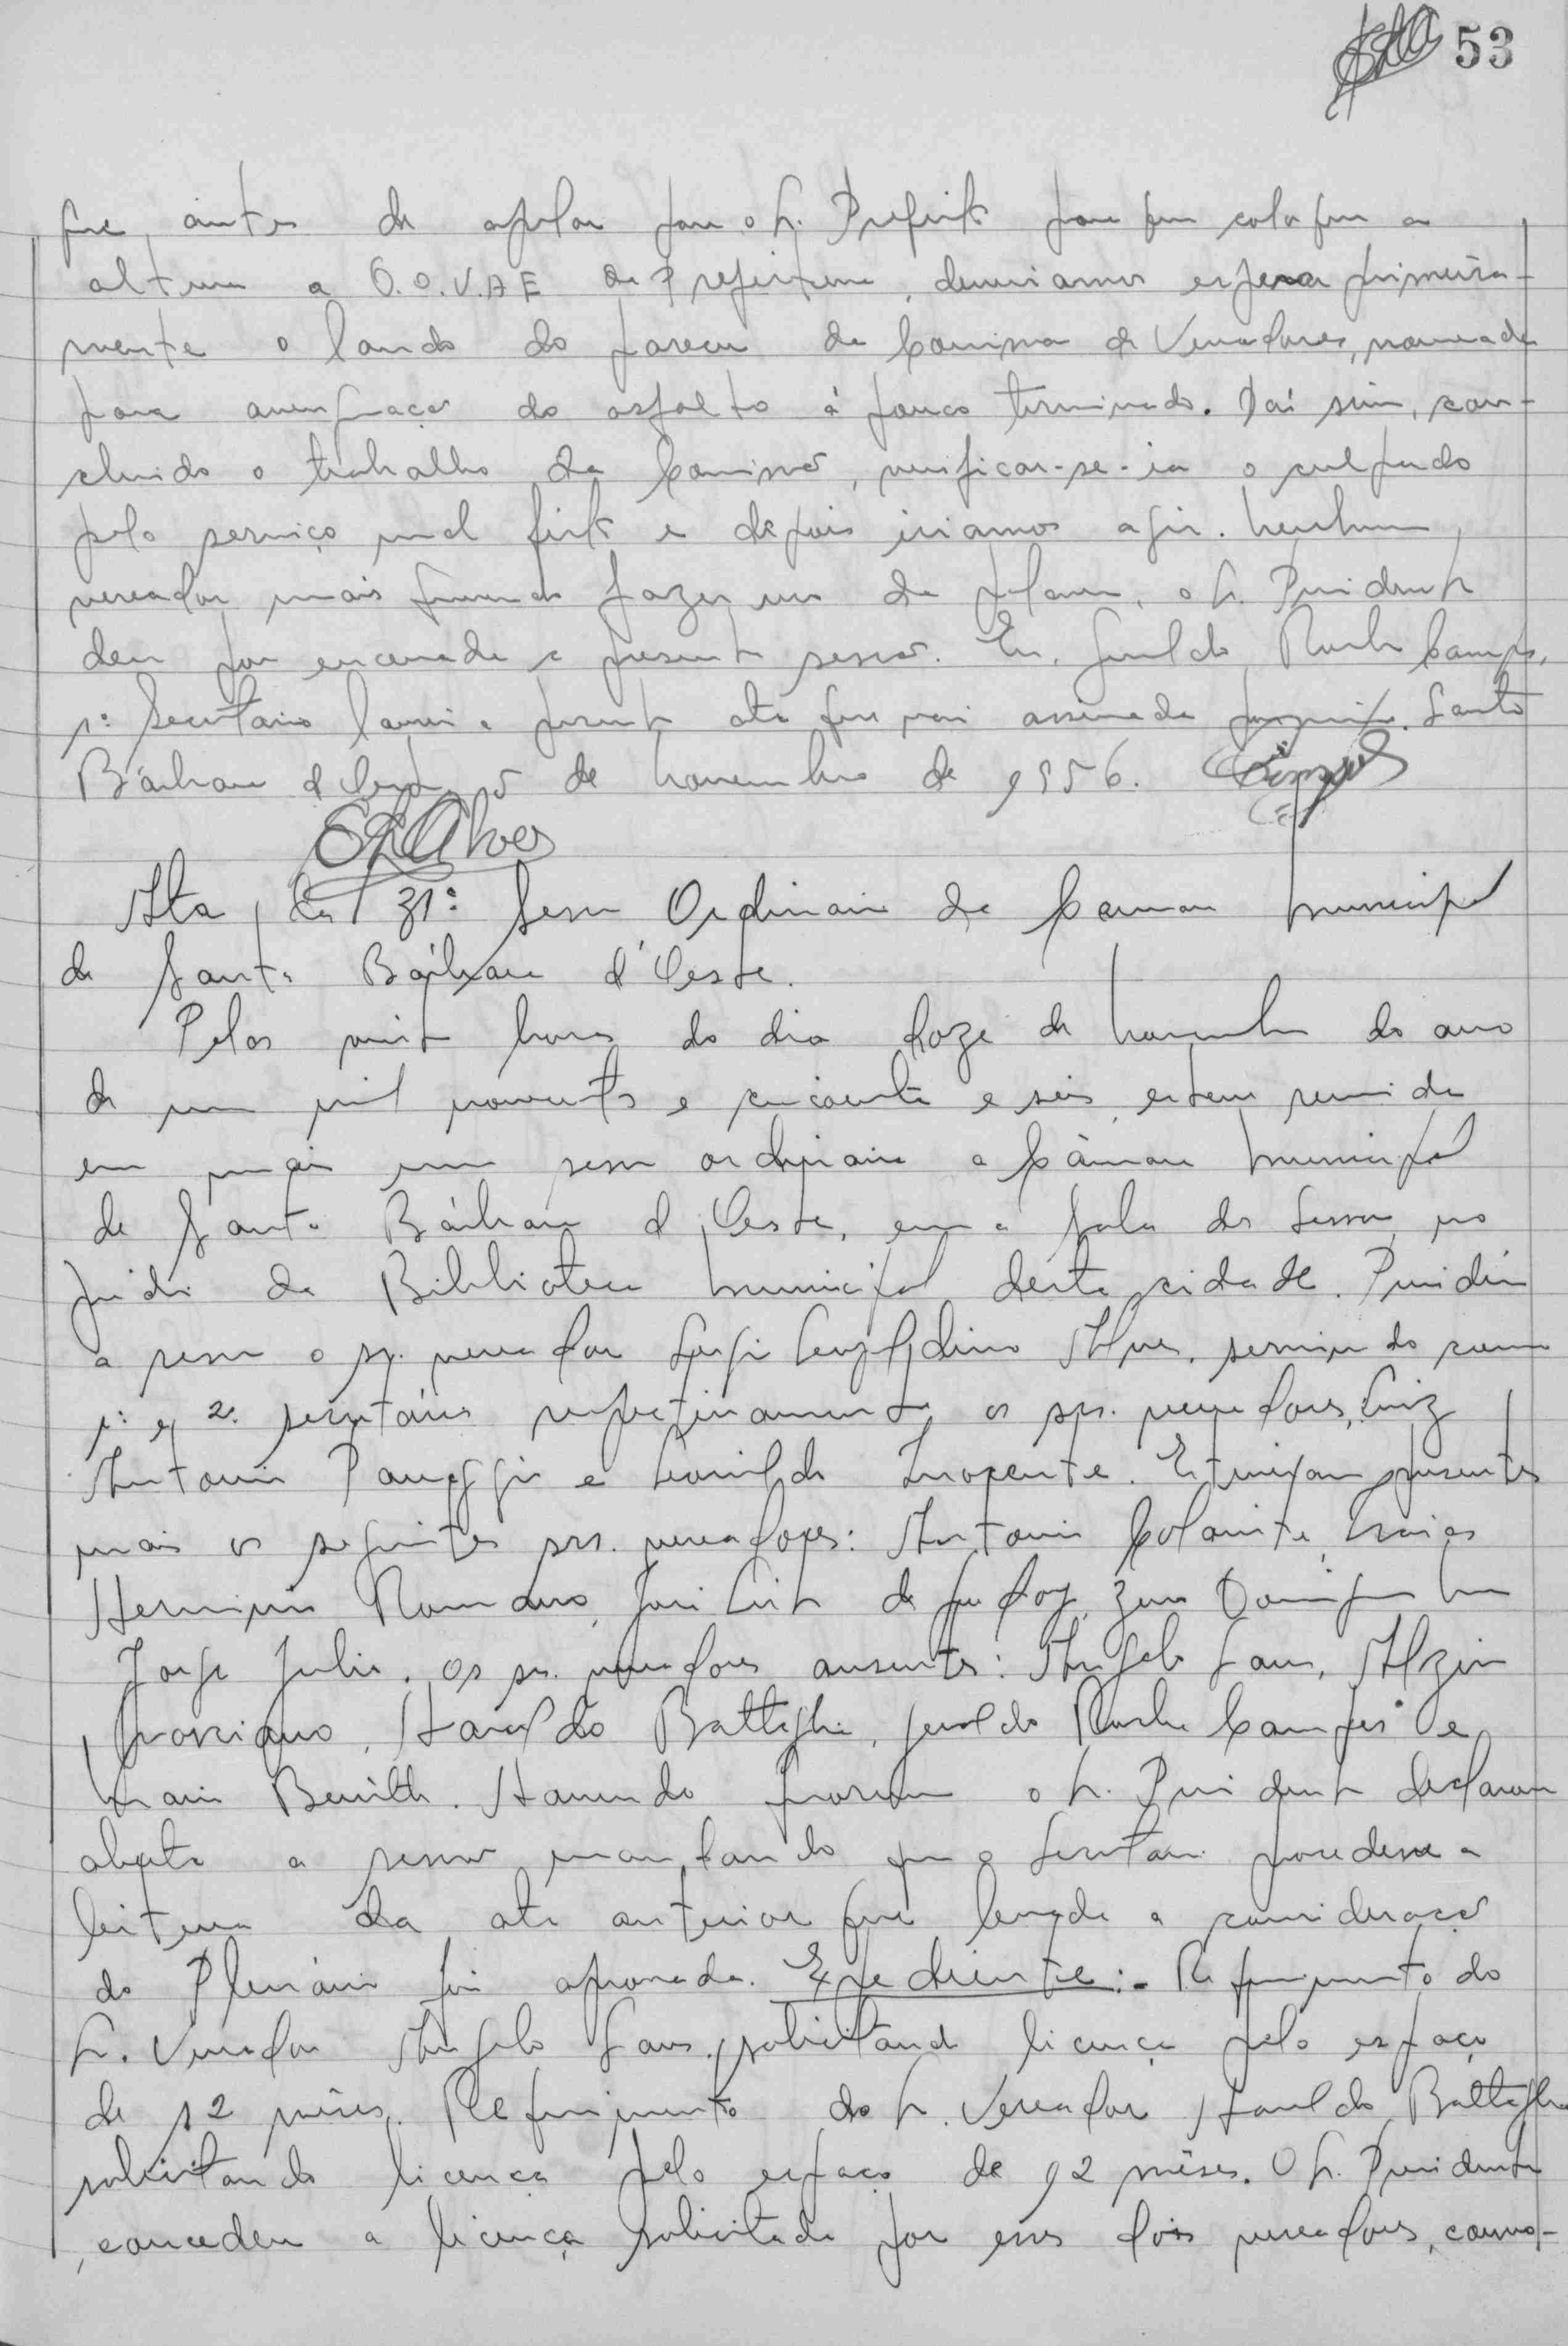 53
que antes de apelar para o Sr. Prefeito para que coloque a
altura a O.O.V.A E da Prefeitura, deveriamos esperar primeira-
mente o laudo do parecer da Comissão de Vereadores, nomeada
para averiguação do asfalto á pouco terminado. Daí sim, con-
cluido o trabalho da Comissão, verificar-se-ia o culpado
pelo serviço mal feito e depois iriamos agir. Nenhum
vereador mais querendo fazer uso da palavra, o Sr. Presidente
deu por encerrada a presente sessão. Eu, Geraldo Rocha Campos,
1º Secretario lavrei a presente ata que vai assinada Santa
Bárbara d'Oeste, 5 de Novembro de 1956.
Ata da 31ª Sessão Ordinaria da Camara Municipal
de Santa Bárbara d'Oeste.
Pelas vinte horas do dia doze de Novembro do ano
de um mil novecentos e cincoenta e seis, esteve reunida
em mais uma sessão ordinaria a Câmara Municipal
de Santa Bárbara d'Oeste, em a sala das Sessões, no
prédio da Biblioteca Municipal desta cidade. Presidiu
a sessão o sr. vereador Alves, servindo como
1º e 2º secretários respectivamente os srs. vereadores, Luiz
Antonio Panaggio e Leonildo Inocente. Estiveram presentes
mais os seguintes srs. vereadores: Antonio Colarite, Isaias
Herminio Romano, José Leite de Godoy, Domingues
Jorge Julio. Os srs. vereadores ausentes: Angelo Sans, Alzira
Graciano, Haroldo Battaglia, Geraldo Rocha Campos e
Benith. Havendo o Sr. Presidente declarou
aberta a sessão mandando que o Secretario procedesse a
leitura da ata anterior que levada a consideração
do Plenário foi aprovada. Expediente:- Requerimento do
Sr. Vereador Angelo Sans, solicitando licença pelo espaço
de 12 mêses. Requerimento do Sr. Vereador Haroldo Battaglia
solicitando licença pelo espaço de 92 mêses. O Sr. Presidente
concedeu a licença solicitada por esses dois vereadores, convo-